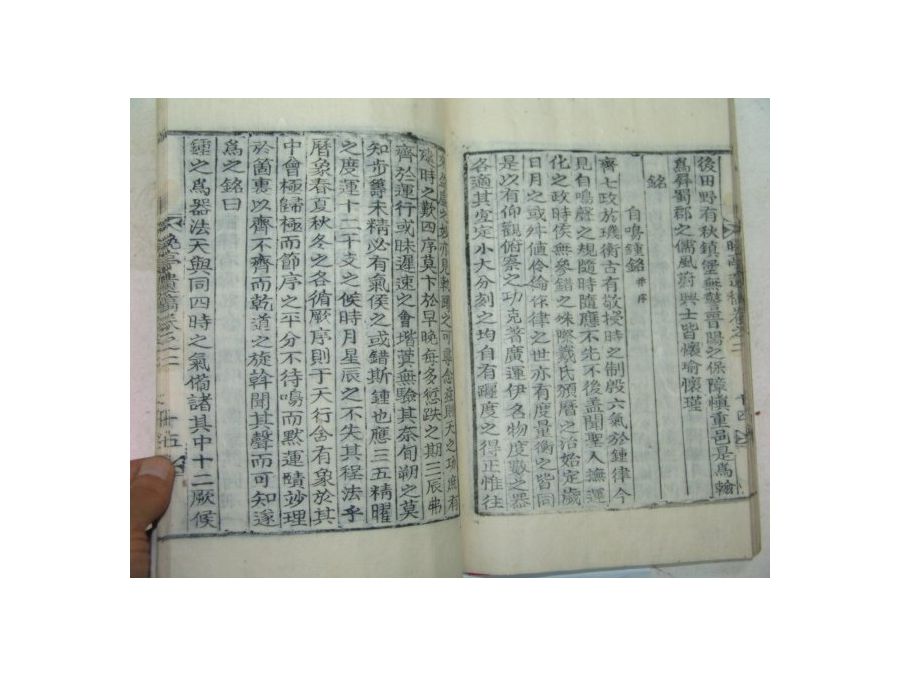 後田野有秋鎮堡無警晉陽之保障愼重邑是爲翰
爲屛蜀郡之儒風蔚興士皆懷瑜懷瑾
銘
自鳴鍾銘 并序
齊七政於璣衡古有敬授時之制殷六氣於鍾律今
見自鳴聲之規隨時隨應不先不後盖聞聖人撫運
化之政時侯無參錯之殊際戴氏頒曆之治始定歲
日月之或舛値伶倫作律之世亦有度量衡之皆同
是以有仰觀俯察之功克著廣運伊名物度數之器
各適其宜定小大分刻之均自有躔度之得正惟往
之可專念玆則天之功庶有
時之歎四序莫下於早晩每多愆跌之期三辰弗
齊於運行或昧遲速之會堦蓂無驗其奈旬朔之莫
知步籌未精必有氣侯之或錯斯鍾也應三五精曜
之度運十二干支之候時月星辰之不失其程法乎
曆象春夏秋冬之各循厥序則于天行舍有象於其
中會極歸極而節序之平分不待鳴而默運賾玅理
於箇裏以齊不齊而乾道之旋斡聞其聲而可知遂
爲之銘曰
鍾之爲器法天與同四時之氣備諸其中十二厥候
晩亭遺稿卷之二
十五